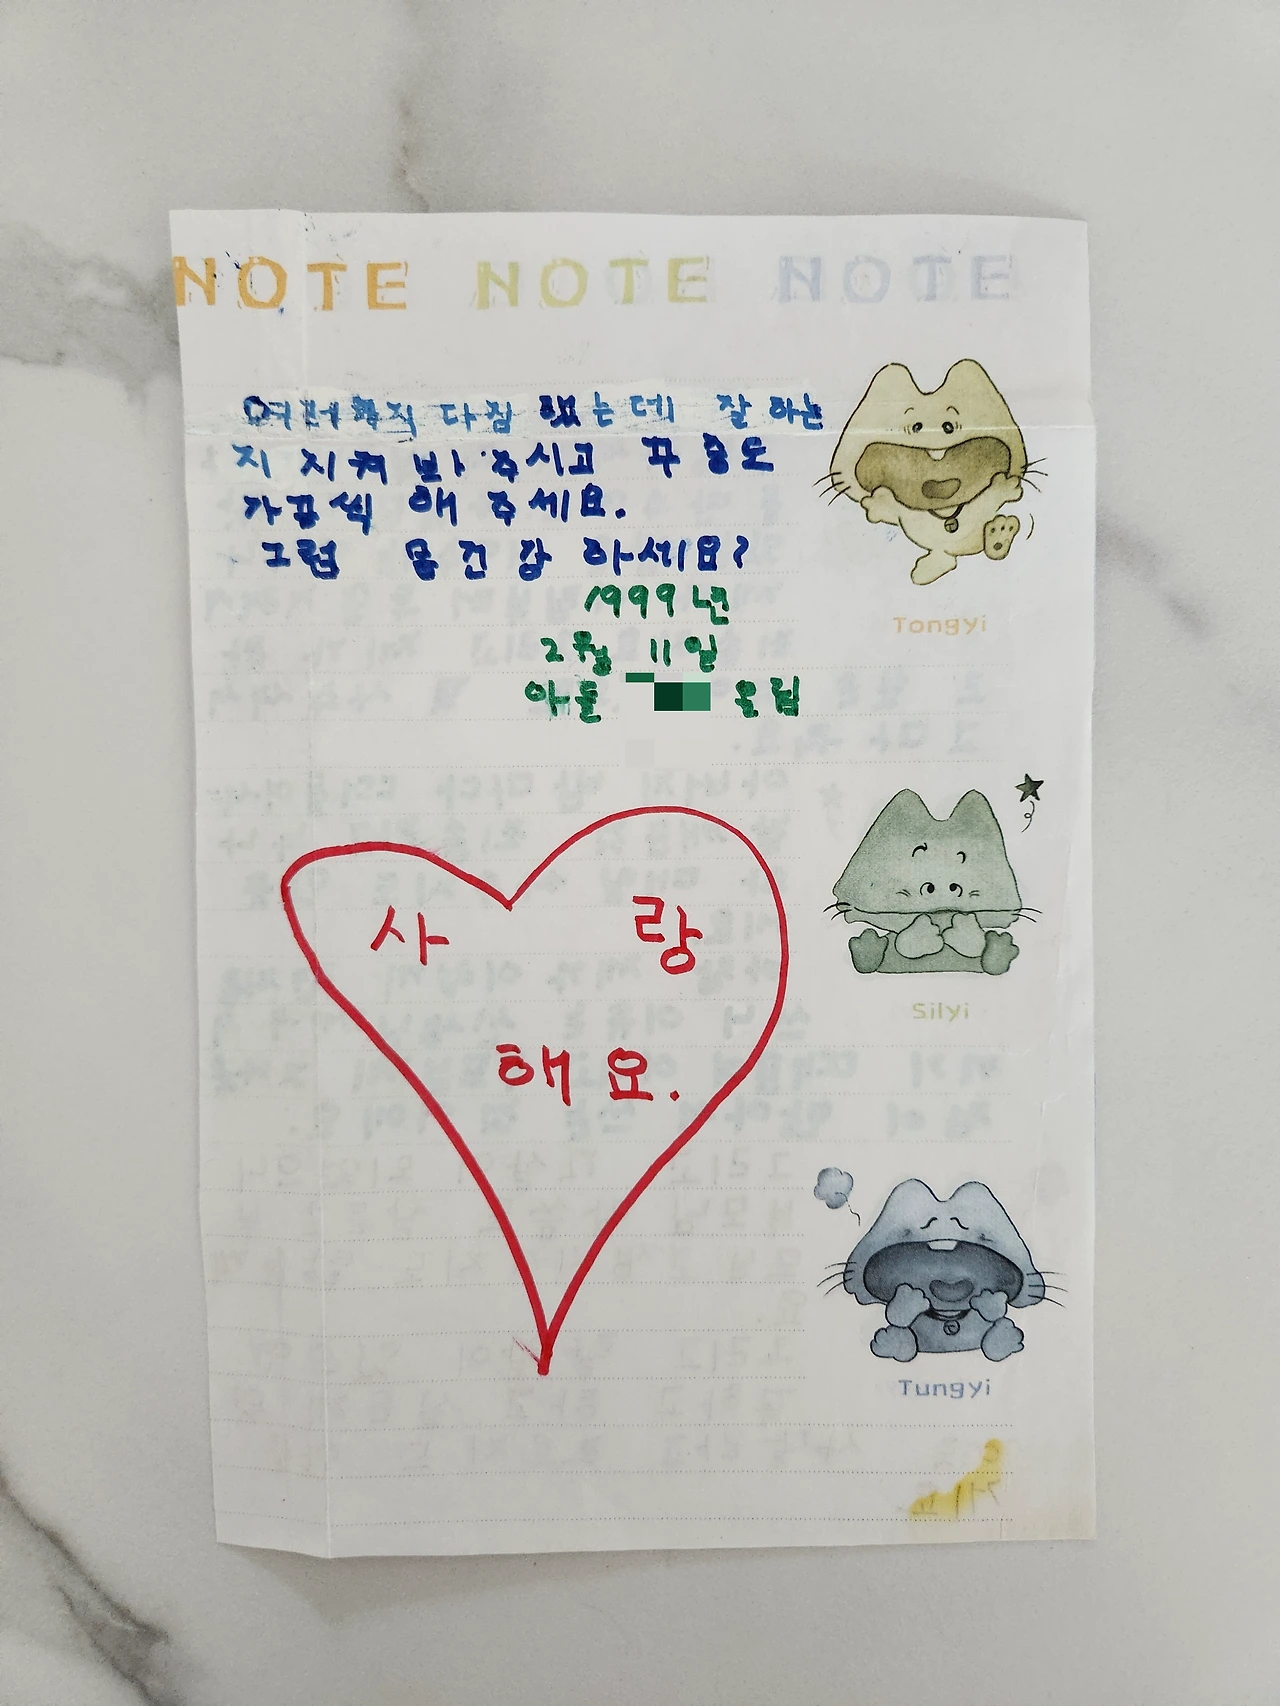 NOTE NOTE NOTE
다짐 했는데 잘 하는
지 지켜 봐 주시고 꾸중도
가끔씩 해 주세요.
그럼 몸 건강 하세요?
1999년
2월 11일
아들 올림
Tongyi
사 랑
해 요.
Silyi
Tungyi